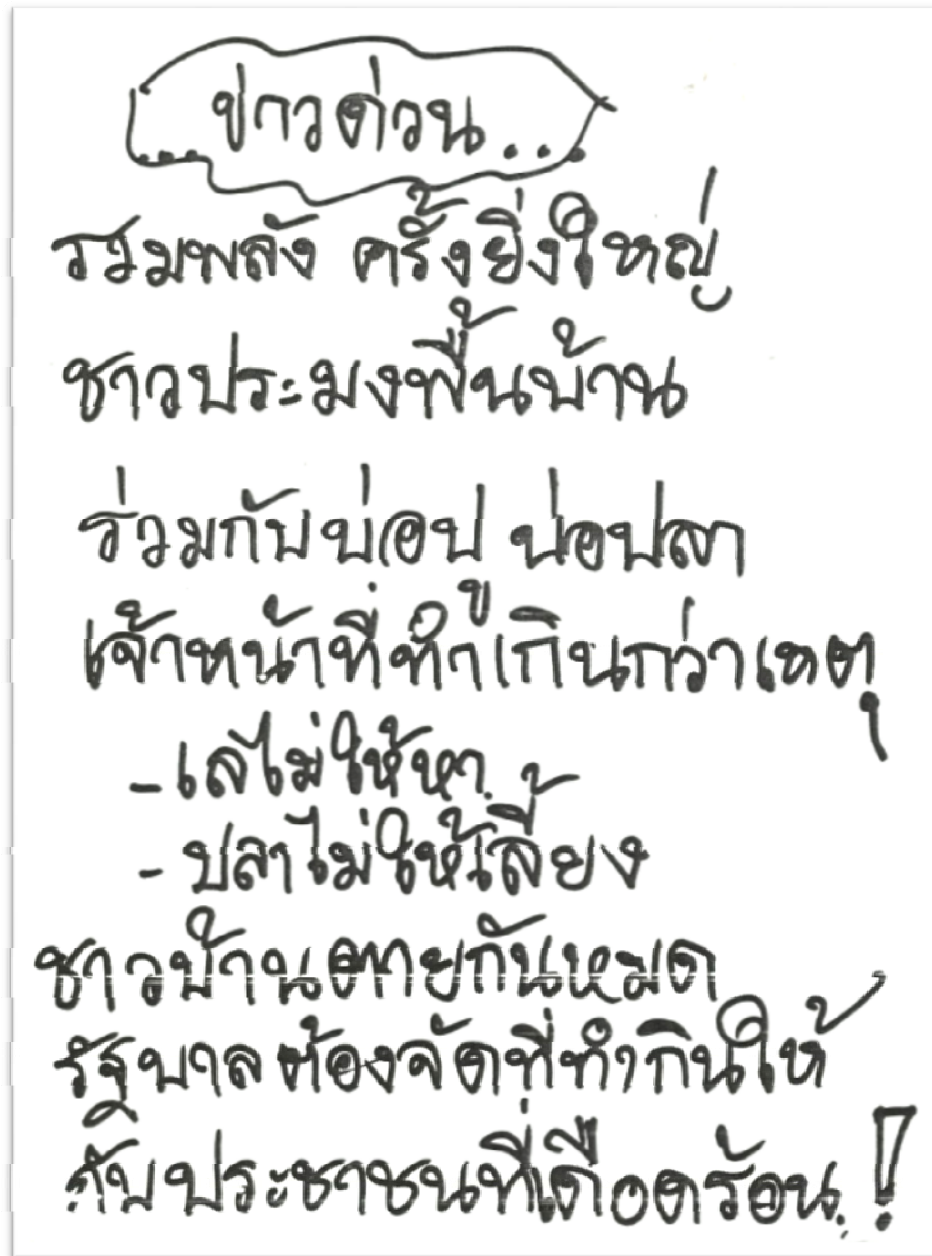 ...ข่าวด่วน...
รวมพลัง ครั้งยิ่งใหญ่
ชาวประมงพื้นบ้าน
ร่วมกับบ่อปู บ่อปลา
เจ้าหน้าที่ทำเกินกว่าเหตุ
- เลไม่ให้หา
- ปลาไม่ให้เลี้ยง
ชาวบ้านตายกันหมด
รัฐบาลต้องจัดที่ทำกินให้
กับประชาชนที่เดือดร้อน!